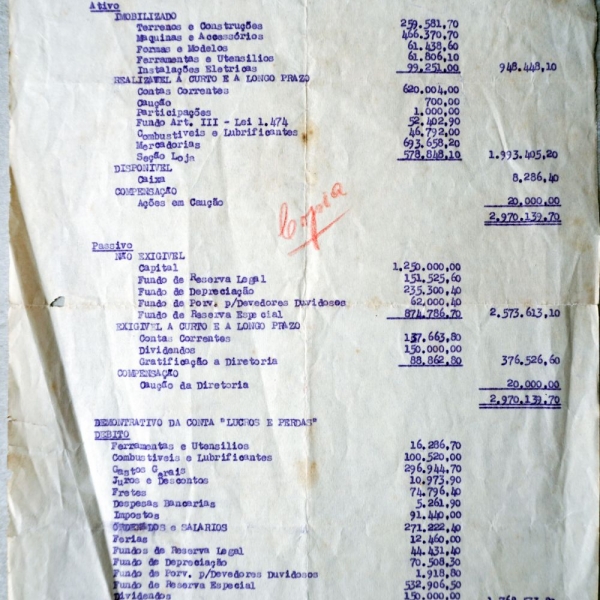 Ativo
IMOBILIZADO
Terrenos e Construções 259.581,70
Maquinas e Accessórios 466.370,70
Formas e Modelos 61.438,60
Ferramentas e Utensilios 61.806,10
Instalações Eletricas 99.251,00 948.448,10
REALIZAVEL A CURTO E A LONGO PRAZO
Contas Correntes 620.004,00
Caução 700,00
Participações 1.000,00
Fundo Art. III - Lei 1.474 52.402,90
Combustiveis e Lubrificantes 46.792,00
Mercadorias 693.658,20
Seção Loja 578.848,10 1.993.405,20
DISPONIVEL
Caixa 8.286,40
COMPENSAÇÃO
Ações em Caução 20.000,00
2.970.139,70
Copia
Passivo
NÃO EXIGIVEL
Capital 1.250.000,00
Fundo de Reserva Legal 151.525,60
Fundo de Depreciação 235.300,40
Fundo de Porv. p/Devedores Duvidosos 62.000,40
Fundo de Reserva Especial 874.786,70 2.573.613,10
EXIGIVEL A CURTO E A LONGO PRAZO
Contas Correntes 137.663,80
Dividendos 150.000,00
Gratificação a Diretoria 88.862,80 376.526,60
COMPENSAÇÃO
Caução da Diretoria 20.000,00
2.970.139,70
DEMONTRATIVO DA CONTA "LUCROS E PERDAS"
DEBITO
Ferramentas e Utensilios 16.286,70
Combustiveis e Lubrificantes 100.520,00
Gastos Gerais 296.944,70
Juros e Descontos 10.973,90
Fretes 74.796,40
Despesas Bancarias 5.261,90
Impostos 91.440,00
ORDENADOS e SALARIOS 271.222,40
Ferias 12.460,00
Fundos de Reserva Legal 44.431,40
Fundo de Depreciação 70.508,30
Fundo de Porv. p/Devedores Duvidosos 1.918,80
Fundo de Reserva Especial 532.906,50
Dividendos 150.000,00